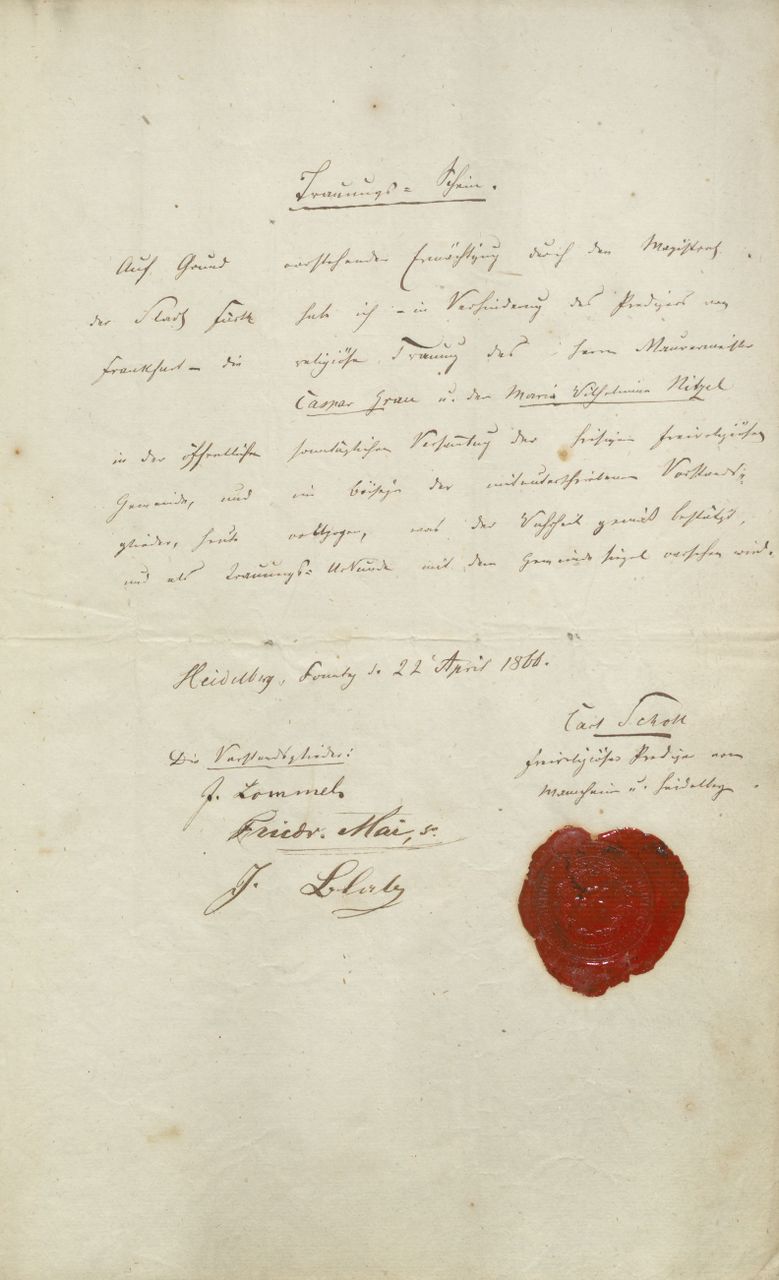 Trauungs=Schein.
Auf Grund vorstehender Ermächtigung durch den Magistrat
der Stadt Fürth habe ich – in Verhinderung des Predigers von
Frankfurt – die religiöse Trauung des Herrn Maurermeister
Caspar Grau u. der Maria Wilhelmina Nitzel
in der öffentlichen sonntäglichen Versammlung der hiesigen freireligiösen
Gemeinde, und im Beisein der mitunterschriebenen Vorstands=
glieder, heute vollzogen, was der Wahrheit gemäß bestätigt,
und als Trauungs=Urkunde mit dem Gemeindesiegel versehen wird.
Heidelberg, Sonntag d. 22 April 1866.
Carl Scholl
freireligiöser Prediger von
Mannheim u. Heidelberg.
Die Vorstandsglieder:
J. Lommel
Friedr. Mai, s.
J.